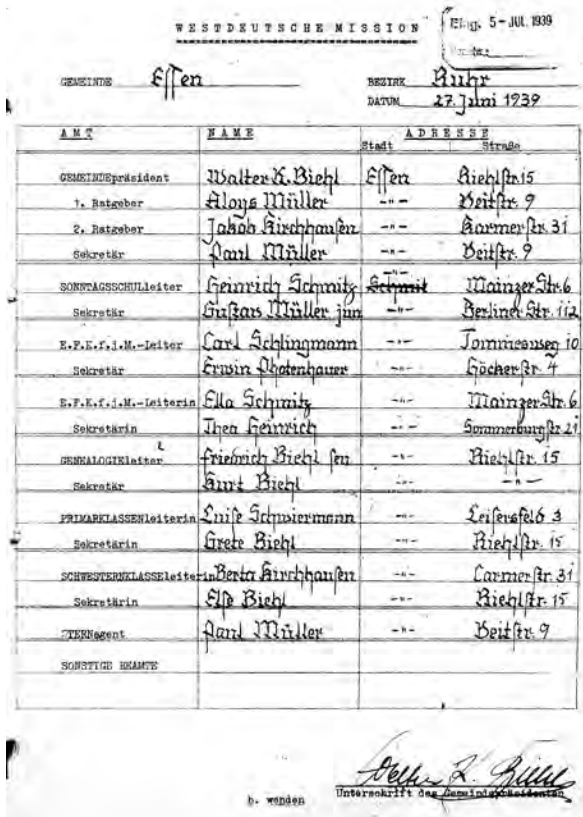 WESTDEUTSCHE MISSION
Eing. 5-JUL. 1939
GEMEINDE Essen BEZIRK Ruhr
DATUM 27. Juni 1939
AMT NAME ADRESSE
Stadt Straße
GEMEINDEpräsident Walter K. Biehl Essen Riehlstr. 15
1. Ratgeber Aloys Müller -"- Veitstr. 9
2. Ratgeber Jakob Kirchhausen -"- Karmerstr. 31
Sekretär Paul Müller -"- Veitstr. 9
SONNTAGSSCHULleiter Heinrich Schmitz Schmit -"- Mainzer Str. 6
Sekretär Gustav Müller jun -"- Berliner Str. 112
E.F.K.f.j.M.-Leiter Carl Schlingmann -"- Tommesweg 10
Sekretär Erwin Photenhauer -"- Höcherstr. 4
E.F.K.f.j.M.-Leiterin Ella Schmitz -"- Mainzer Str. 6
Sekretärin Thea Heinrich -"- Sommerburgstr. 21
GENEALOGIEleiter Friedrich Biehl sen -"- Riehlstr. 15
Sekretär Kurt Biehl -"- -"-
PRIMARKLASSENleiterin Luise Schwiermann -"- Leisersfeld 3
Sekretärin Grete Biehl -"- Riehlstr. 15
SCHWESTERNKLASSEleiterin Berta Kirchhausen -"- Carmerstr. 31
Sekretärin Else Biehl -"- Riehlstr. 15
STERNagent Paul Müller -"- Veitstr. 9
SONSTIGE BEAMTE
Walter K. Biehl
Unterschrift des Gemeindepräsidenten
b. wenden